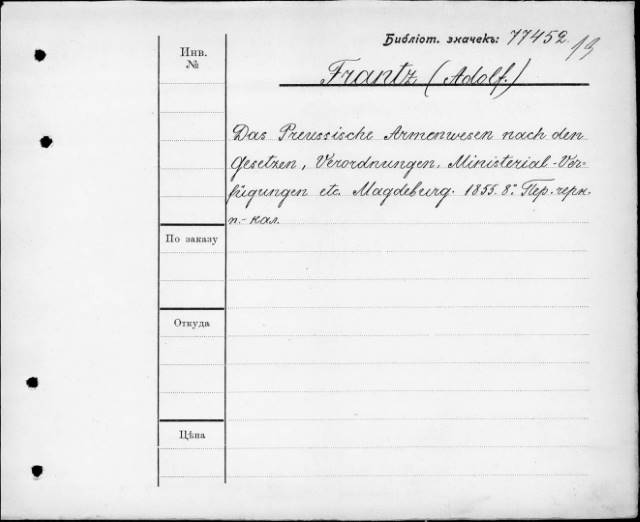 Библіот. значекъ: 77452 13
Инв. №
Frantz (Adolf.)
Das Preussische Armenwesen nach den
Gesetzen, Verordnungen, Ministerial-Ver-
fügungen etc. Magdeburg. 1855. 8.° Пер. черн.
п.-кал.
По заказу
Откуда
Цѣна